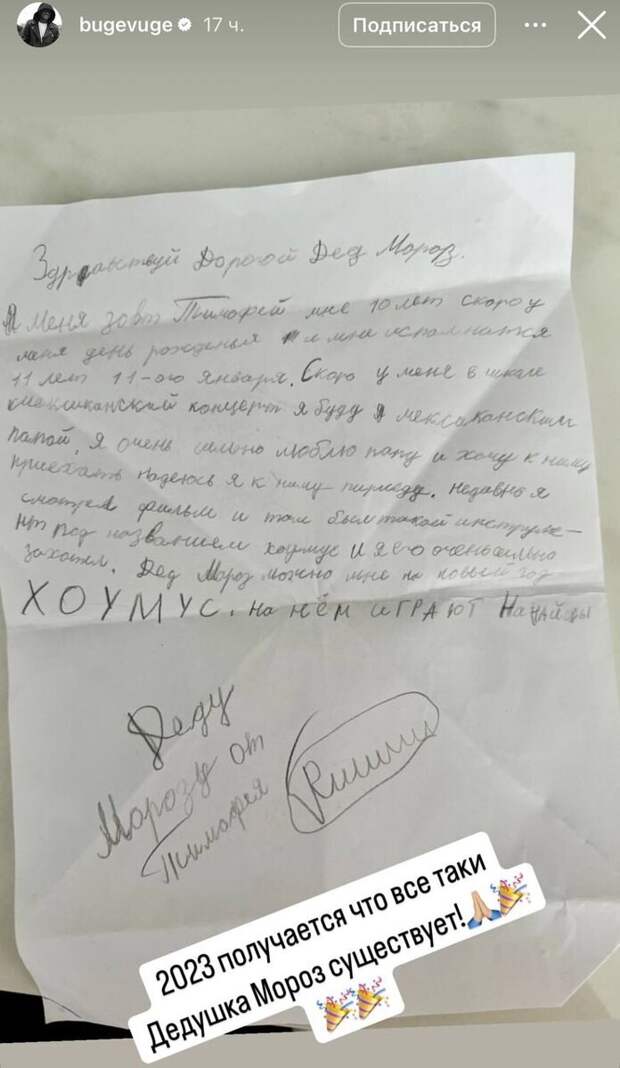 bugevuge 17 ч.
Подписаться
Здравствуй Дорогой Дед Мороз.
Меня зовт Тимофей мне 10 лет скоро у
меня день рожденья и мне исполнится
11 лет 11-ого Января. Скоро у меня в школе
мексиканский концерт я буду мексаканским
папой, я очень сильно люблю папу и хочу к нему
приехать надеюсь я к нему приеду. недавно я
смотрел фильм и там был такой инструме-
нт под названием хоумус и я его очень сильно
захотел. Дед Мороз можно мне на новый год
ХОУМУС. на нём ИГРАЮТ
Деду
Морозу от
Тимофея
2023 получается что все таки
Дедушка Мороз существует!🙏🏼🎉
🎉🎉